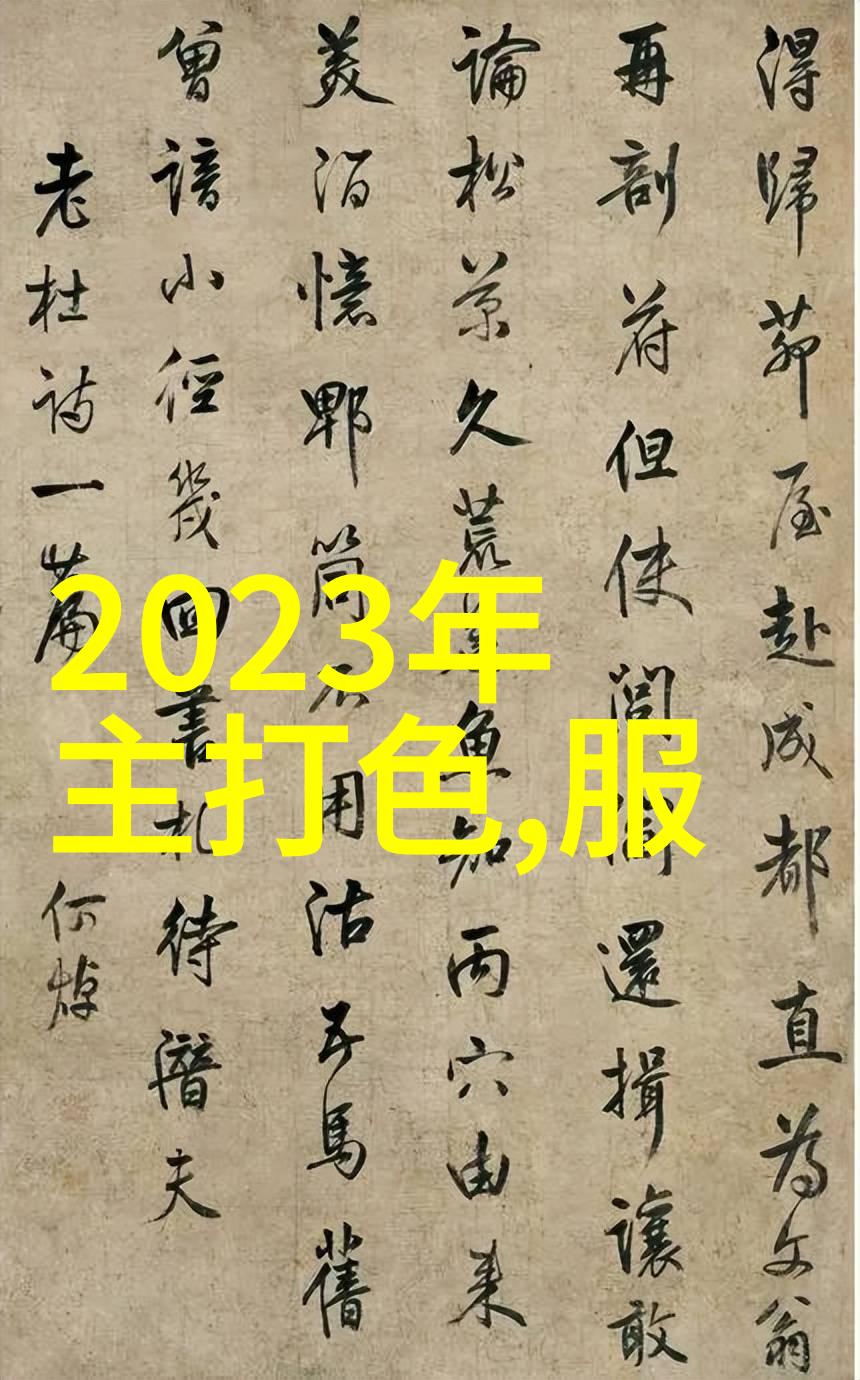 得歸茅屋赴成都直為文翁
再剖符但使閭閻還揖讓敢
論松久荒蕪魚知丙穴由來
美酒憶郫筒不用沽五馬舊
曾諳小徑幾回書札待潛夫
老杜詩一篇
何焯
2023年
主打色,服